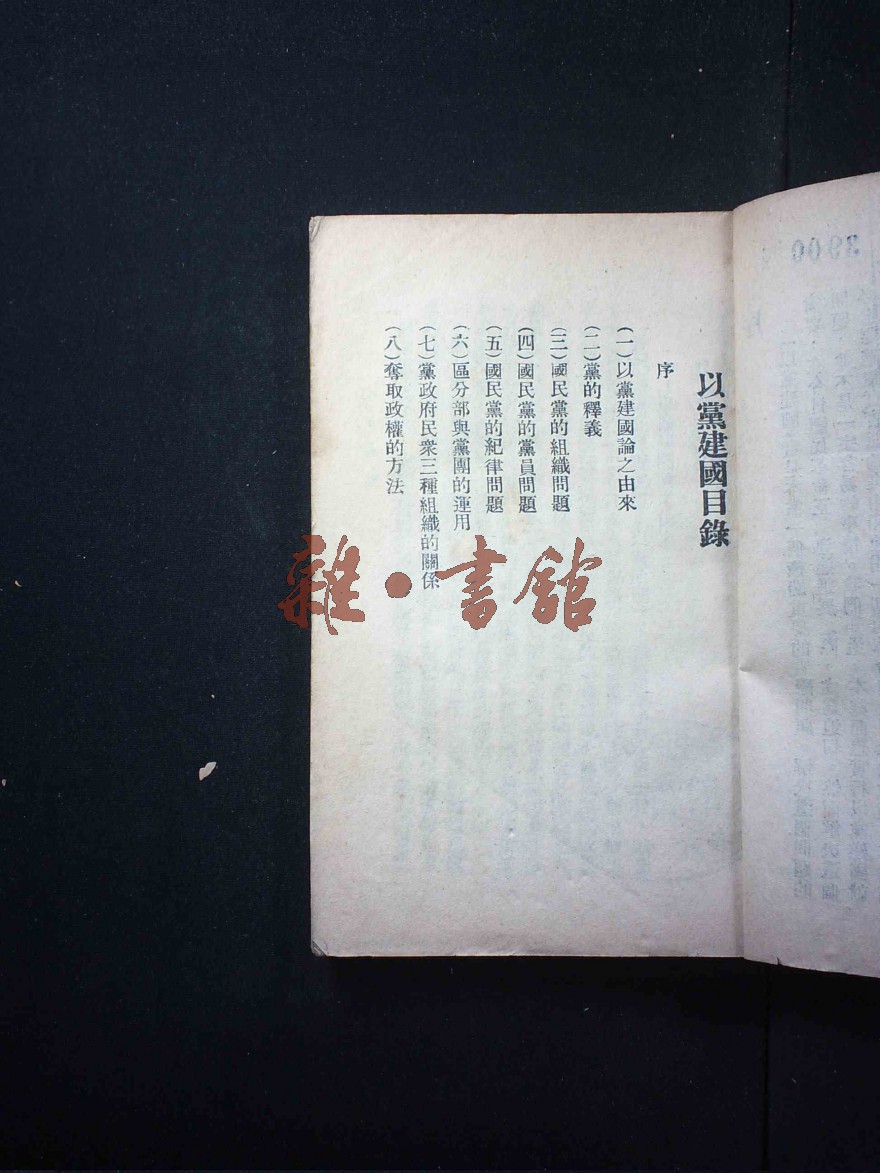 以黨建國目錄
序
(一)以黨建國論之由來
(二)黨的釋義
(三)國民黨的組織問題
(四)國民黨的黨員問題
(五)國民黨的紀律問題
(六)區分部與黨團的運用
(七)黨政府民衆三種組織的關係
(八)奪取政權的方法
雜·書館